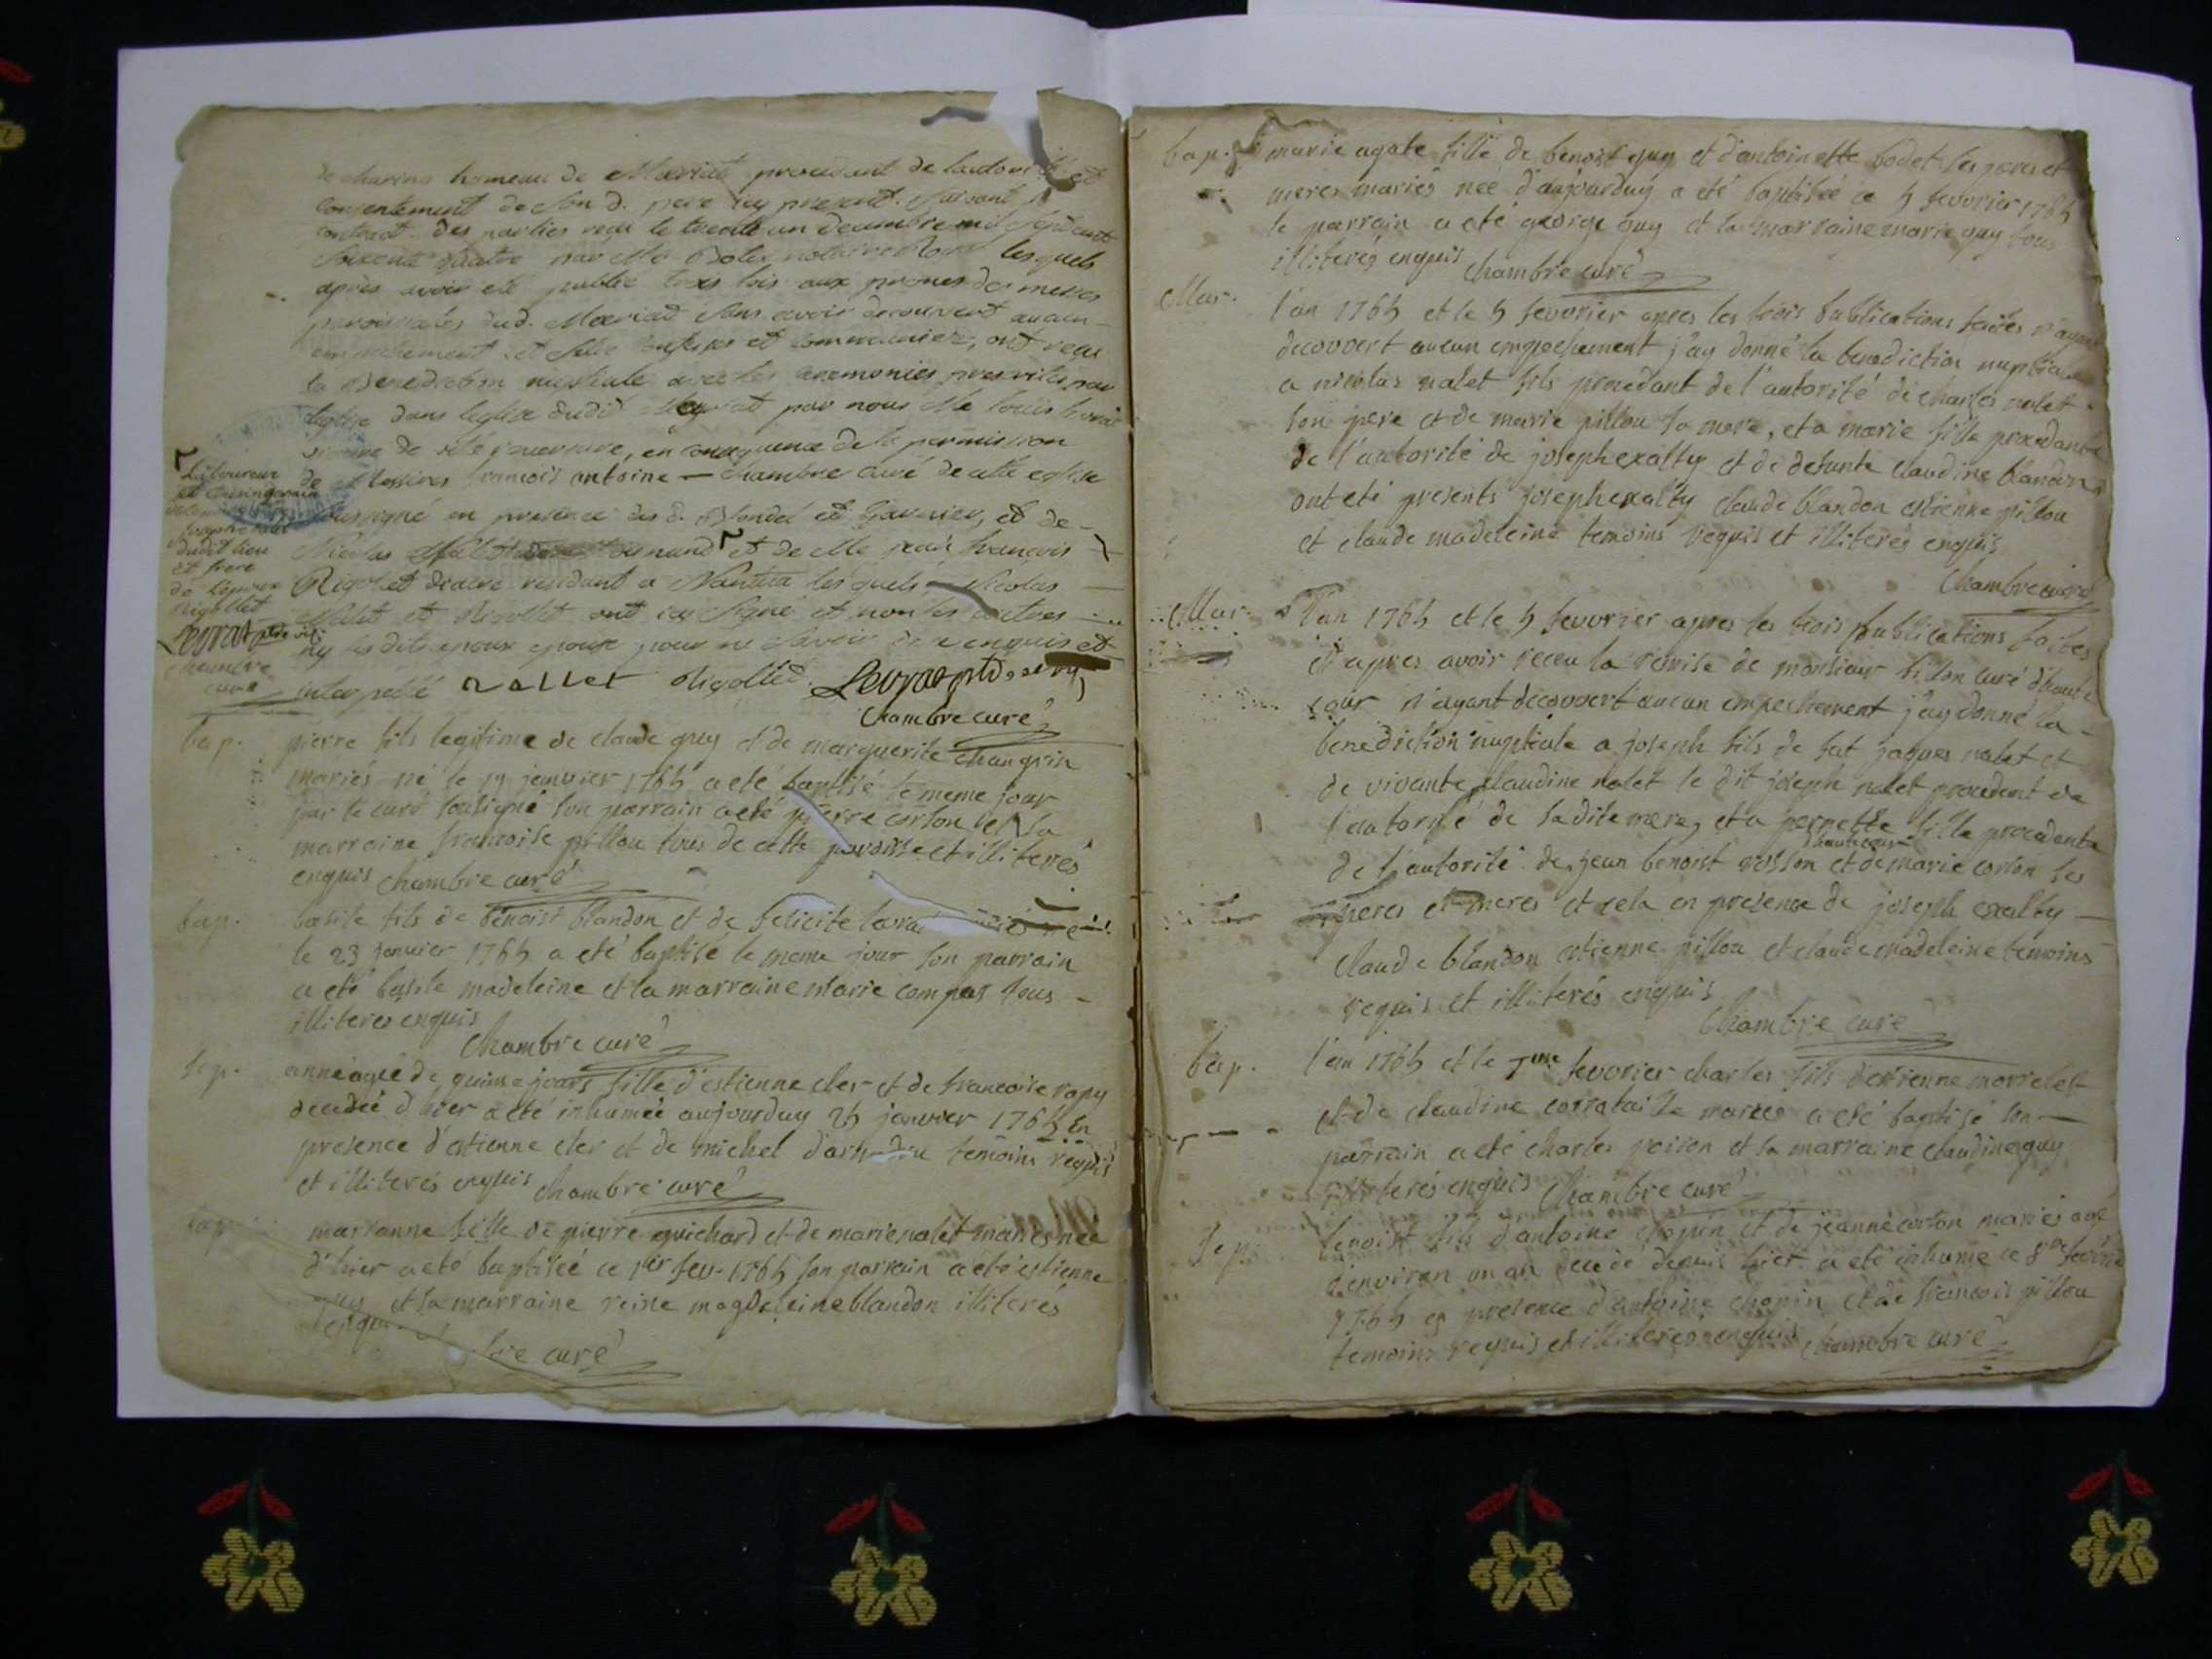 de charina hameau de Mériat procedant de l'autorité et
consentement de son d. pere icy present. suivant le
contract des parties reçu le trente un decembre mil sept cent
soixante quatre par Me notaire Royal lesquels
après avoir eté publié trois fois aux prones des messes
paroissiales dud. Mériat sans avoir decouvert aucun
empechement et s'être confesses et communiez, ont reçu
la Benediction nuptiale avec les ceremonies prescrites par
l'eglise dans l'eglise dudit Meyriat par nous Me louis
de, en consequence de la permission
de Messires françois antoine — chambre curé de cette eglise
soussigné en presence des d. Blondel et Garnier, et de —
Nicolas et de Me jean françois
Rigolet diacre residant a Nantua lesquels Nicolas
Nalet et Rigollet ont icy signé et non les autres
ny lesdits epoux epouse pour ne sçavoir de ce enquis et
interpellé Nallet Rigollet. Levrat ptre vic.
Chambre curé
Laboureur
et cousin germain
Joseph
dudit lieu
et frere
de
Rigollet
Levrat
chambre
curé
bap. pierre fils legitime de claude guy et de marguerite changrin
mariés né le 19 janvier 1765 a eté baptisé le meme jour
par le curé soussigné son parrain a eté pierre corton et la
marraine francoise pillou tous de cette paroisse et illiterés
enquis chambre curé
bap. basile fils de benoist blandon et de felicité né
le 23 janvier 1765 a eté baptisé le meme jour son parrain
a eté basile madeleine et la marraine marie compas tous —
illiteres enquis
Chambre curé
Sep. anne agée de quinze jours fille d'estienne cler et de francoise rapy
decedée d'hier a eté inhumée aujourduy 25 janvier 1765 En
presence d'estienne cler et de michel temoins requis
et illiterés enquis chambre curé
bap. marianne fille de pierre guichard et de marie nalet mariés née
d'hier a eté baptisée ce 1er fev. 1765 son parrain a eté estienne
guy et sa marraine reine magdeleine blandon illiterés
enquis curé
bap. marie agate fille de benoist guy et d'antoinette bodet ses peres et
meres mariés née d'aujourduy a eté baptisée ce 5 fevvrier 1765
le parrain a eté george guy et la marraine marie guy tous
illiterés enquis chambre curé
Mar. l'an 1765 et le 5 fevvrier apres les trois publications faites n'ayant
decouvert aucun empechement j'ay donné la benediction nuptiale
a nicolas nalet fils procedant de l'autorité de charles nalet
son pere et de marie pillou sa mere, et a marie fille procedante
de l'autorité de joseph exalty et de defunte claudine blandon
ont eté presents joseph exalty claude blandon estienne pillou
et claude madeleine temoins requis et illiterés enquis
Chambre curé
Mar. l'an 1765 et le 5 fevvrier apres les trois publications faites
et apres avoir receu la remise de monsieur tillon curé d'haute
cour n'ayant decouvert aucun empechement j'ay donné la —
benediction nuptiale a joseph fils de fut jaques nalet et
de vivante claudine nalet le dit joseph nalet procedent de
l'autorité de sadite mere, et a pernette fille procedente
de l'autorité de jean benoist rosson d'hautecour et de marie corton ses
peres et meres et cela en presence de joseph exalty —
claude blandon estienne pillou et claude madeleine temoins
requis et illiterés enquis
Chambre curé
bap. l'an 1765 et le 7me fevvrier charles fils d'estienne morrelet
et de claudine corrataille mariés a eté baptisé son —
parrain a eté charles poison et sa marraine claudine guy
illiterés enquis Chambre curé
Sep. benoist fils d'antoine chopin et de jeanne corton mariés agé
d'environ un an decedé depuis hier a eté inhumé ce 8me fevvrier
1765 en presence d'antoine chopin et de francois pillou
temoins requis et illiterés enquis chambre curé